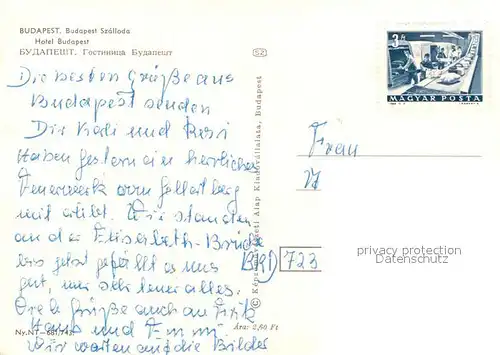 BUDAPEST, Budapest Szálloda
Hotel Budapest
БУДАПЕШТ. Гостиница Будапешт
SZ
3 Ft
MAGYAR POSTA
Die besten Grüße aus
Budapest senden
Dir und Resi
Haben gestern ein herrliches
Feuerwerk vom Gellertberg
mit erlebt. Wir standen
an der Elisabeth-Brücke
bis jetzt gefällt es uns
gut, nur sehr teuer alles.
Grüße auch an
Hans und Emmi.
Wir warten auf die Bilder
Képzőművészeti Alap Kiadóvállalata, Budapest
Frau
BRD 723
privacy protection
Datenschutz
Ára: 2,60 Ft